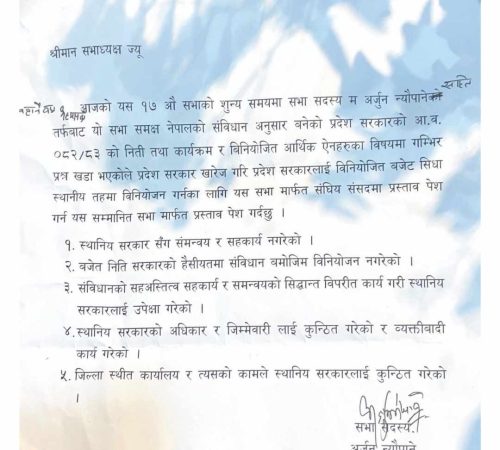 श्रीमान सभाध्यक्ष ज्यू
सहित
आजको यस १७ औ सभाको शुन्य समयमा सभा सदस्य म अर्जुन न्यौपानेको
तर्फबाट यो सभा समक्ष नेपालको संविधान अनुसार बनेको प्रदेश सरकारको आ.व.
०८२/८३ को निती तथा कार्यक्रम र विनियोजित आर्थिक ऐनहरुका विषयमा गम्भिर
प्रश्न खडा भएकोले प्रदेश सरकार खारेज गरि प्रदेश सरकारलाई विनियोजित बजेट सिधा
स्थानीय तहमा विनियोजन गर्नका लागि यस सभा मार्फत संघिय संसदमा प्रस्ताव पेश
गर्न यस सम्मानित सभा मार्फत प्रस्ताव पेश गर्दछु ।
१. स्थानिय सरकार सँग समन्वय र सहकार्य नगरेको ।
२. वजेत निति सरकारको हैसीयतमा संविधान वमोजिम विनियोजन नगरेको ।
३. संविधानको सहअस्तित्व सहकार्य र समन्वयको सिद्धान्त विपरीत कार्य गरी स्थानिय
सरकारलाई उपेक्षा गरेको ।
४. स्थानिय सरकारको अधिकार र जिम्मेवारी लाई कुन्ठित गरेको र व्यक्तीवादी
कार्य गरेको ।
५. जिल्ला स्थीत कार्यालय र त्यसको कामले स्थानिय सरकारलाई कुन्ठित गरेको
।
सभा सदस्य
अर्जुन न्यौपाने